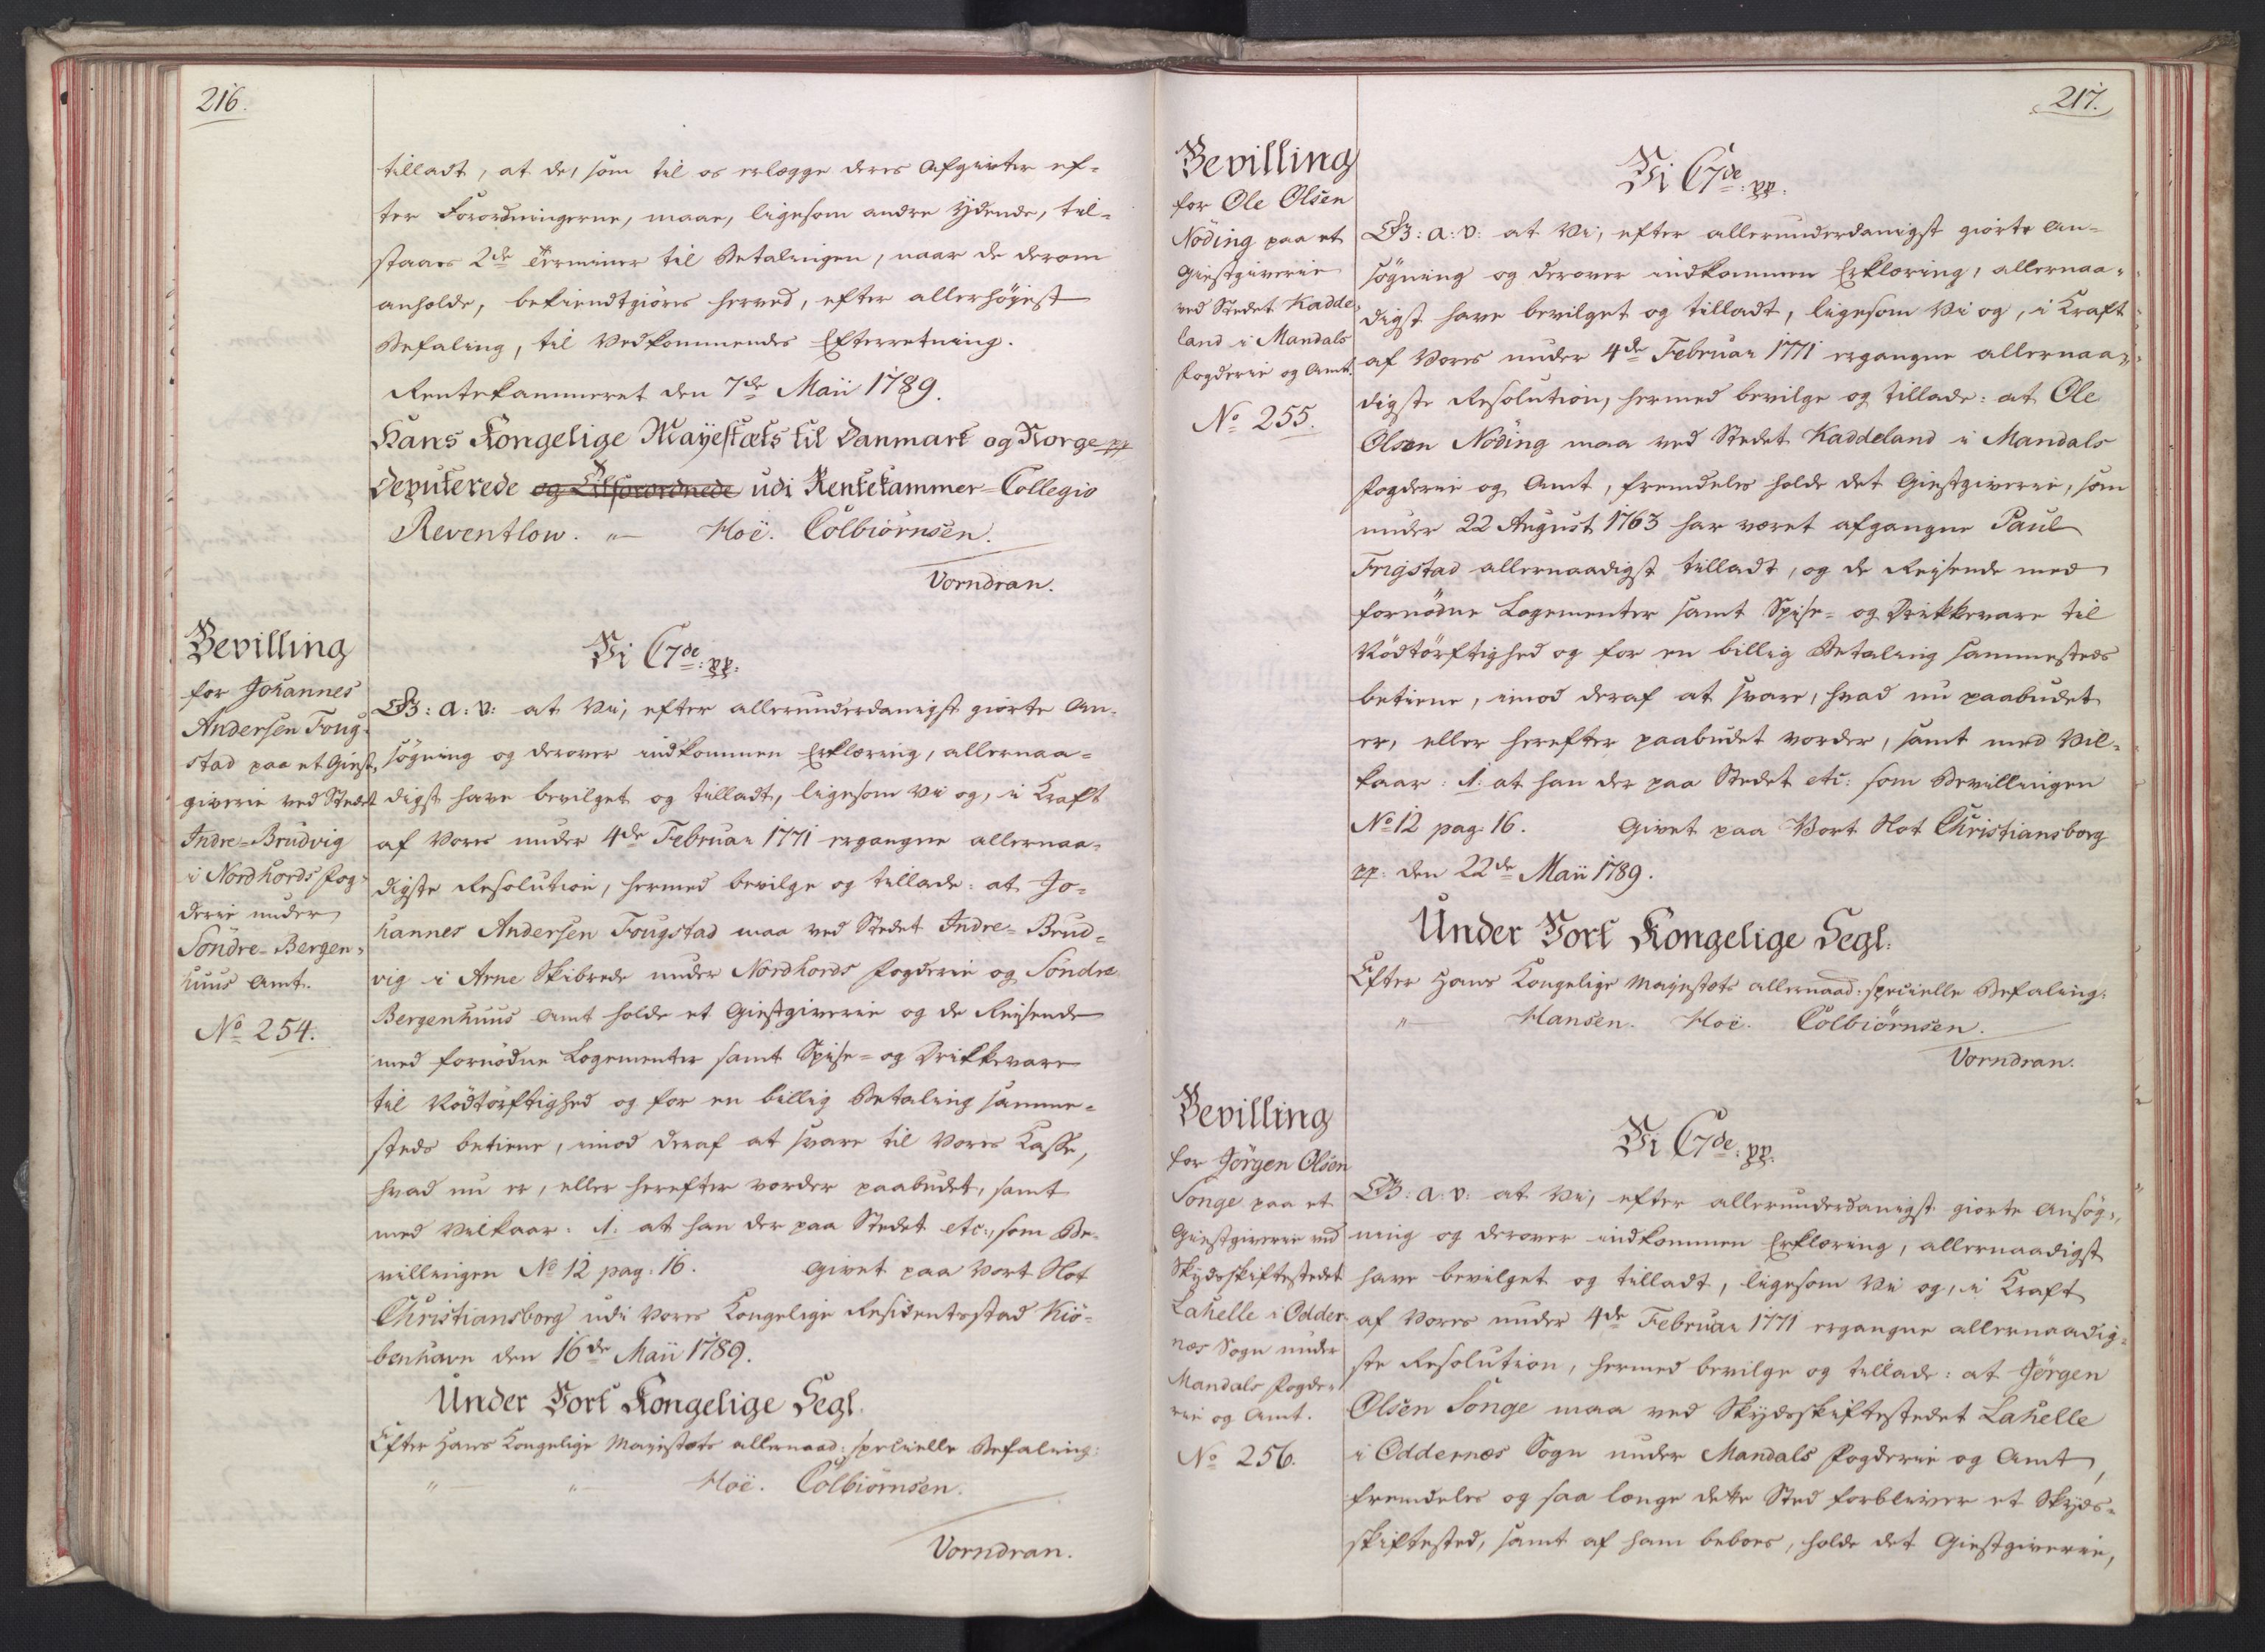 216.
tilladt, at de, som til os erlægge deres Afgivter ef-
ter Forordningerne, maae, ligesom andre Ydende, til-
staaes 2de Terminer til Betalingen, naar de derom
anholde, bekiendtgiøres herved, efter allerhøyest
Befaling, til Vedkommendes Efterretning.
Rentekammeret den 7de Maii 1789.
Hans Kongelige Mayestæts til Danmark og Norge pp
Deputerede og Tilforordnede udi Rentekammer-Collegio
Reventlow. " Hoë. Colbiörnsen.
Vorndran.
Bevilling
for Johannes
Andersen Foug-
stad paa et Giest-
giverie ved Stedet
Indre-Brudvig
i Nordhords Fog-
derie under
Söndre-Bergen-
huus Amt.
No 254.
Vi C7de: pp.
G: a: v: at Vi, efter allerunderdanigst giorte An-
søgning og derover indkommen Erklæring, allernaa-
digst have bevilget og tilladt, ligesom Vi og, i Kraft
af Vores under 4de Februar 1771 ergangne allernaa-
digste Resolution, hermed bevilge og tillade: at Jo-
hannes Andersen Fougstad maa ved Stedet Indre-Brud-
vig i Arne Skibrede under Nordhords Fogderie og Söndre
Bergenhuus Amt holde et Giestgiverie og de Reisende
med fornødne Logementer samt Spise- og Drikkevare
til Nødtørftighed og for en billig Betaling samme-
steds betiene, imod deraf at svare til Vores Kasse,
hvad nu er, eller herefter vorder paabudet, samt
med Vilkaar: 1. at han der paa Stedet etc:, som Be-
villingen No 12 pag: 16. Givet paa Vort Slot
Christiansborg udi Vores Kongelige Residentsstad Kiö-
benhavn den 16de Maii 1789.
Under Vort Kongelige Segl.
Efter Hans Kongelige Mayestæts allernaad: specielle Befaling:
" " Hoë. Colbiörnsen.
Vorndran.
217.
Bevilling
for Ole Olsen
Nöding paa et
Giestgiverie
ved Stedet Kadde-
land i Mandals
Fogderie og Amt.
No 255.
Vi C7de: pp.
G: a: v: at Vi, efter allerunderdanigst giorte An-
søgning og derover indkommen Erklæring, allernaa-
digst have bevilget og tilladt, ligesom Vi og, i Kraft
af Vores under 4de Februar 1771 ergangne allernaa-
digste Resolution, hermed bevilge og tillade: at Ole
Olsen Nöding maa ved Stedet Kaddeland i Mandals
Fogderie og Amt, fremdeles holde det Giestgiverie, som
under 22 August 1763 har været afgangne Paul
Frigstad allernaadigst tilladt, og de Reisende med
fornødne Logementer samt Spise- og Drikkevare til
Nødtørftighed og for en billig Betaling sammesteds
betiene, imod deraf at svare, hvad nu paabudet
er, eller herefter paabudet vorder, samt med Vil-
kaar: 1. at han der paa Stedet etc: som Bevillingen
No 12 pag: 16. Givet paa Vort Slot Christiansborg
pp: den 22de Maii 1789.
Under Vort Kongelige Segl.
Efter Hans Kongelige Mayestæts allernaad: specielle Befaling:
" Hansen. Hoë. Colbiörnsen.
Vorndran.
Bevilling
for Jörgen Olsen
Songe paa et
Giestgiverie ved
Skydsskiftestedet
Lahelle i Odder-
næs Sogn under
Mandals Fogde-
rie og Amt.
No 256.
Vi C7de: pp.
G: a: v: at Vi, efter allerunderdanigst giorte Ansøg-
ning og derover indkommen Erklæring, allernaadigst
have bevilget og tilladt, ligesom Vi og, i Kraft
af Vores under 4de Februar 1771 ergangne allernaadig-
ste Resolution, hermed bevilge og tillade: at Jörgen
Olsen Songe maa ved Skydsskiftestedet Lahelle
i Oddernæs Sogn under Mandals Fogderie og Amt,
fremdeles og saa længe dette Sted forbliver et Skyds-
skiftested, samt af ham beboes, holde det Giestgiverie,